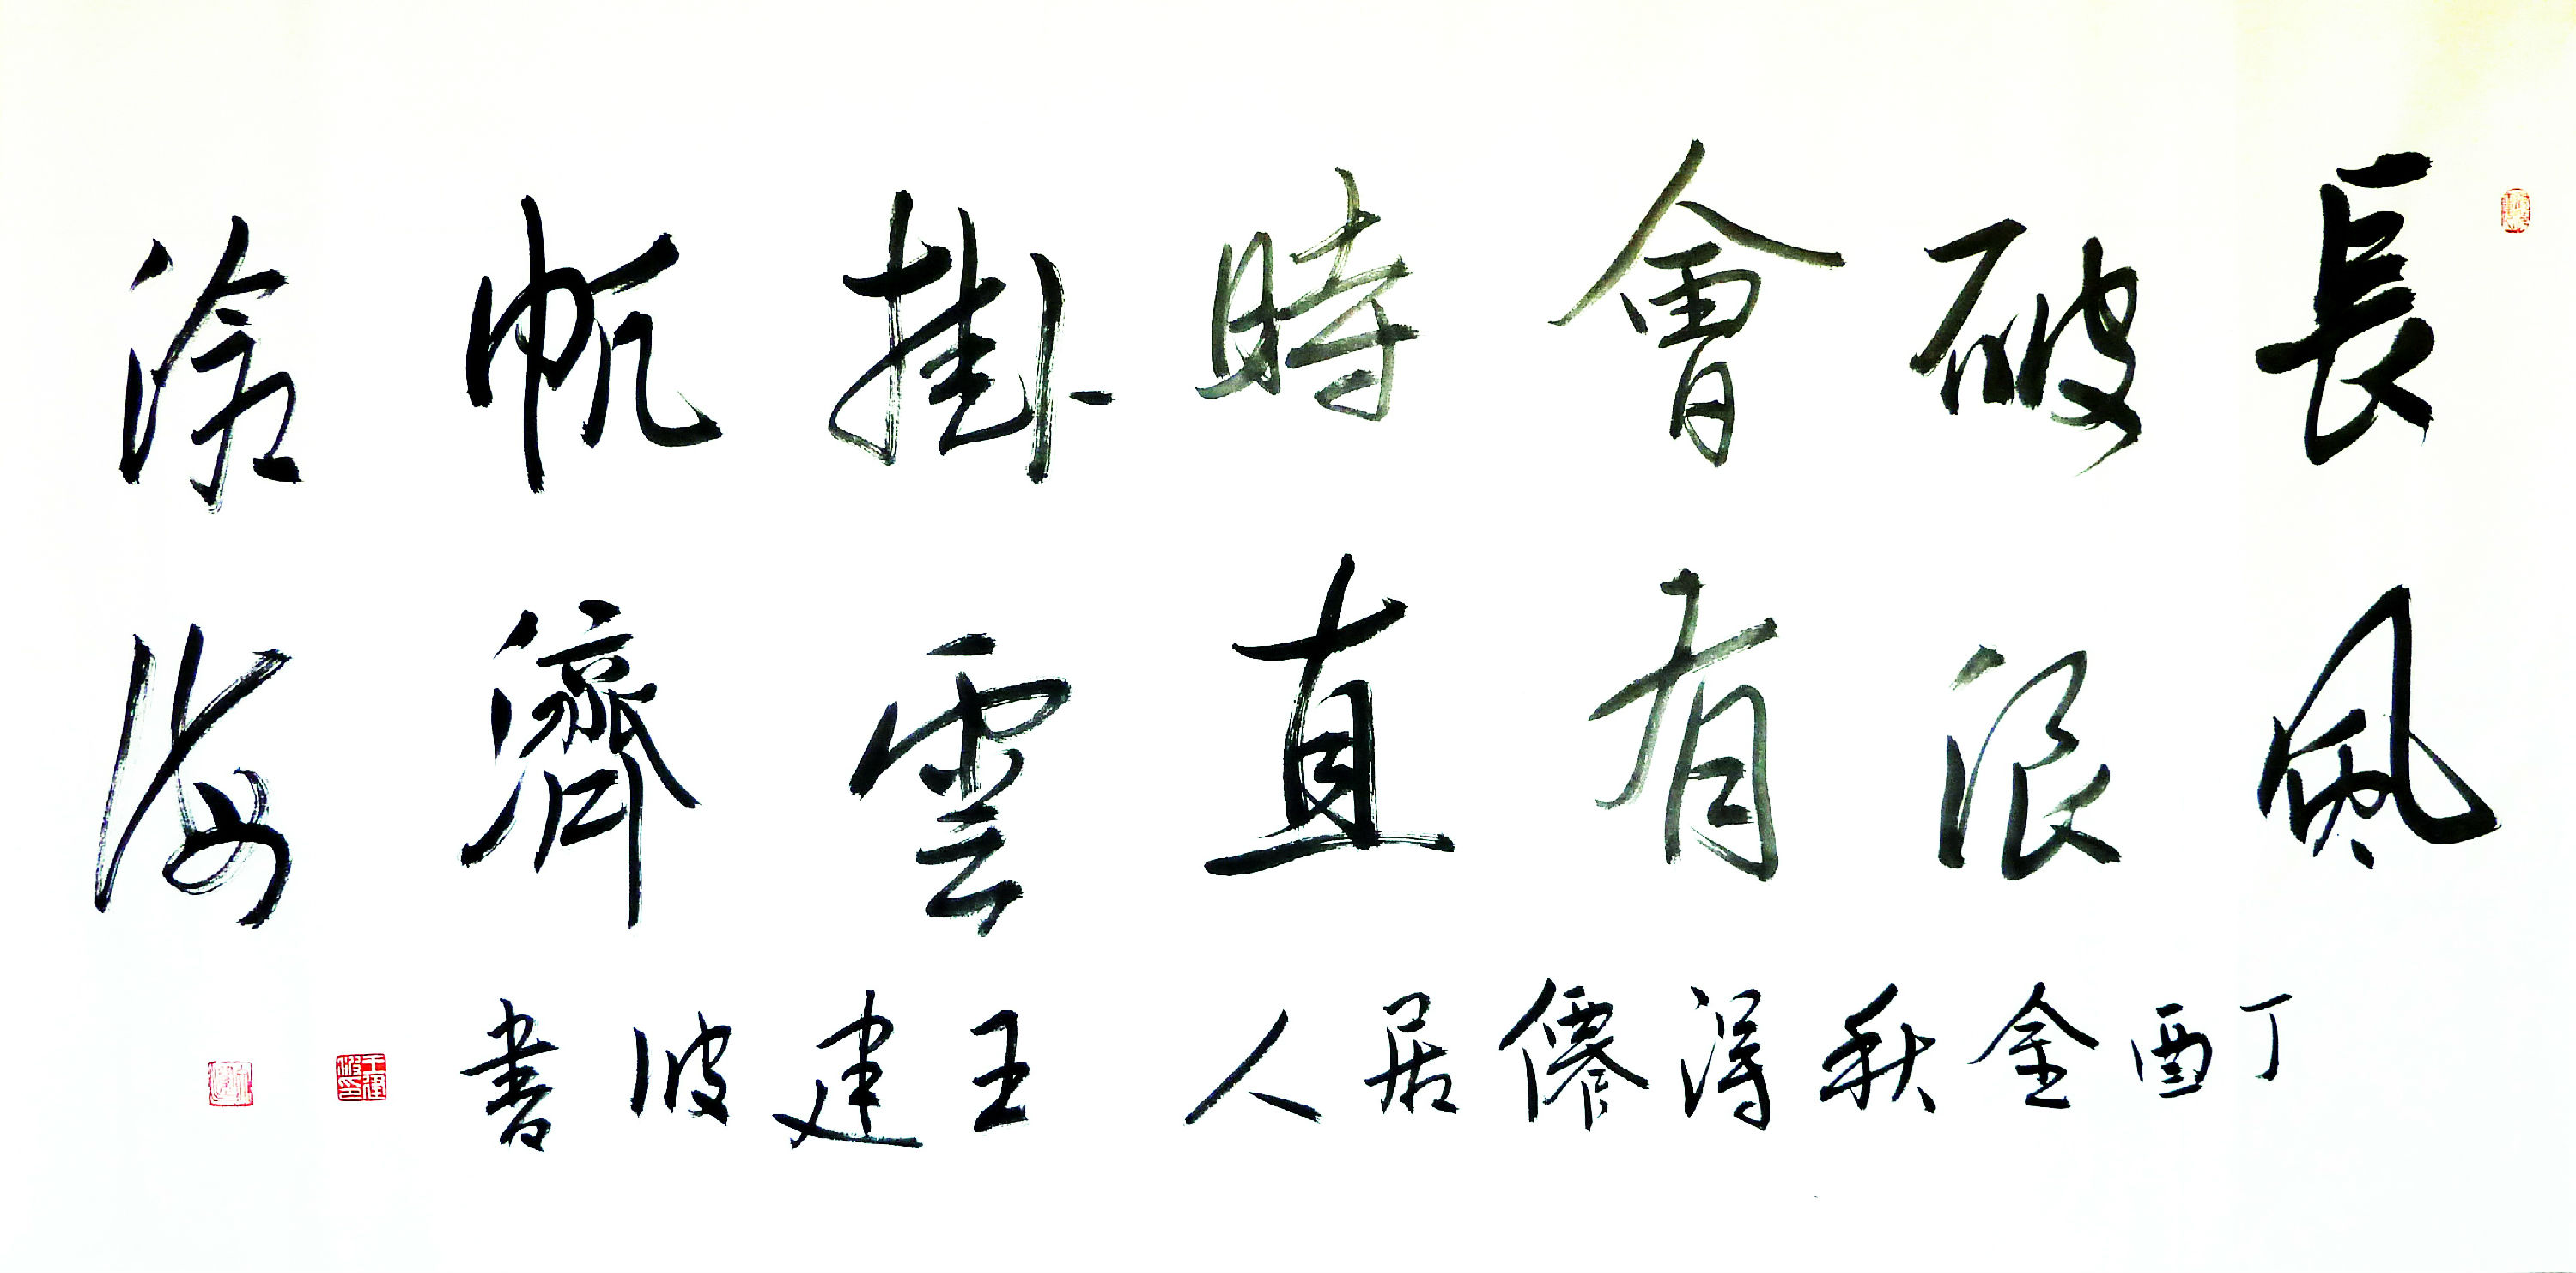 長風
破浪
會有
時直
掛雲
帆濟
滄海
丁酉金秋淂僊居人 王建波書
王建波印